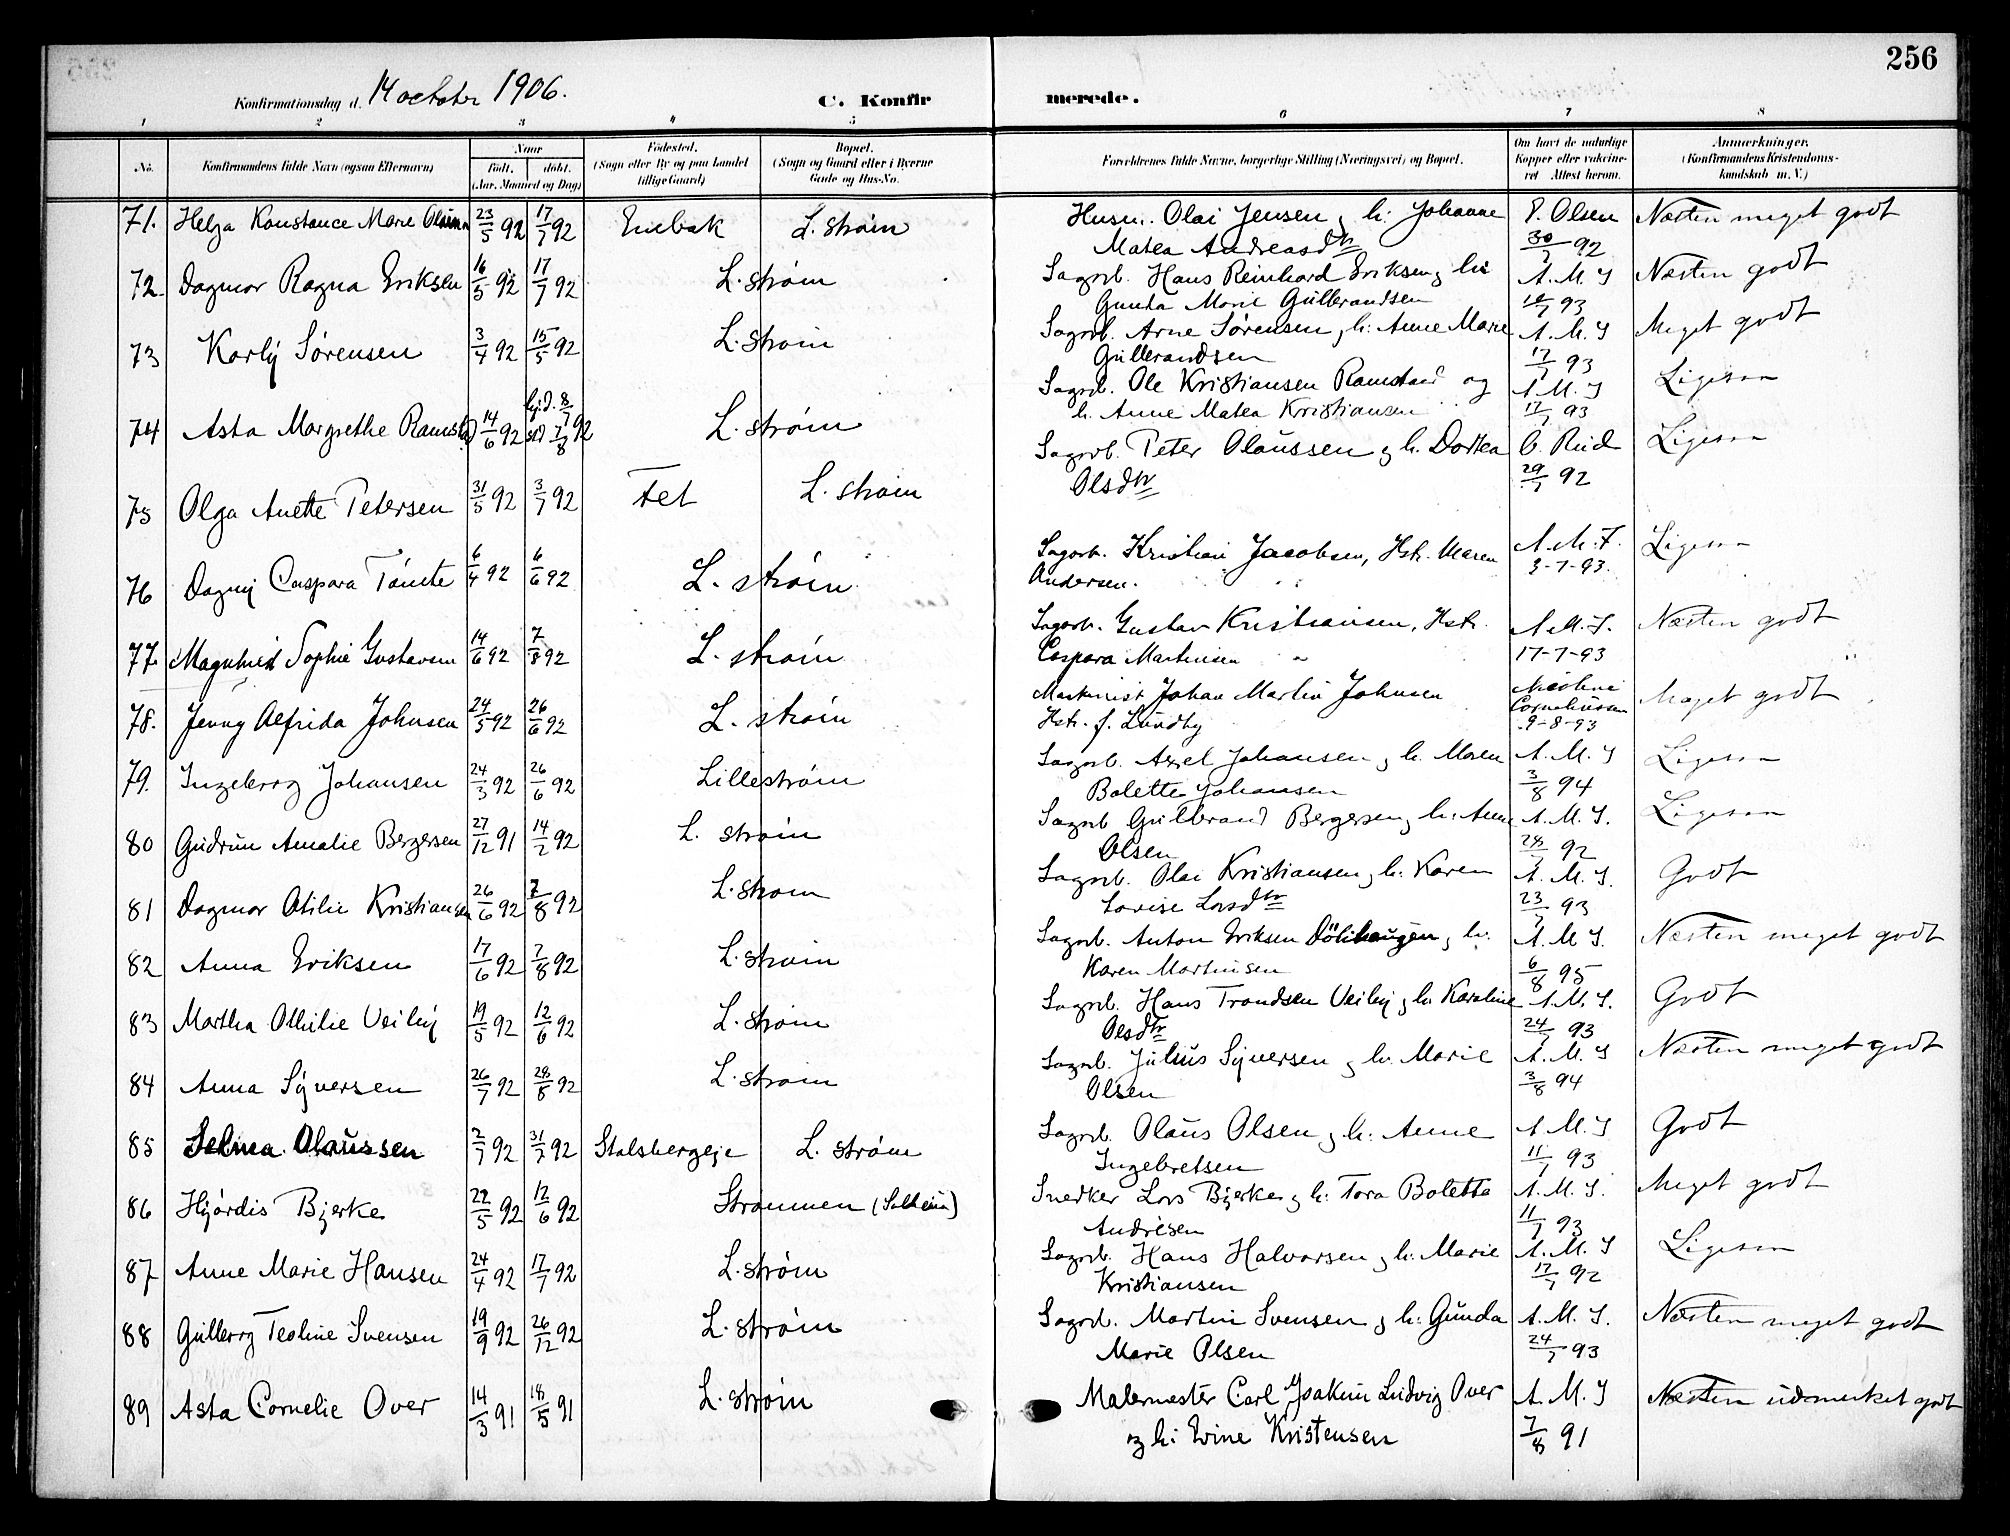 256
Konfirmationsdag d. 14 october 1906.
C. Konfirmerede.
1 2 3 4 5 6 7 8
No. Konfirmandens fulde Navn (ogsaa Efternavn) Naar født. døbt. (Aar, Maaned og Dag) Fødested. (Sogn eller By og paa Landet tillige Gaard) Bopæl. (Sogn og Gaard eller i Byerne Gade og Hus-No. Forældrenes fulde Navne, borgerlige Stilling (Næringsvei) og Bopæl. Om havt de naturlige Kopper eller vaccineret Attest herom. Anmærkninger. (Konfirmandens Kristendomskundskab m. V.)
71. Helga Konstance Marie Olsen 23/5 92 17/7 92 Enebak L. strøm Husm. Olai Jensen og h: Johanne P. Olsen Næsten meget godt
Matea Andreasdtr 30/7 92
72. Dagmar Ragna Eriksen 16/5 92 17/7 92 L. strøm Sagarb. Hans Reinhard Eriksen og h: A. M. S Næsten godt
Gunda Marie Gulbrandsen 93
73 Karly Sørensen 3/4 92 15/5 92 L. strøm Sagarb. Arne Sørensen og h: Anne Marie A. M. S Meget godt
Gulbrandsen 17/7 93
74 Asta Margrethe Ramstad 14/6 92 hj.d. 8/7 std 7/8 92 L. strøm Sagarb. Ole Kristiansen Ramstad og A. M. S Ligesaa
h. Anne Matea Kristiansen 17/7 93
75 Olga Anette Petersen 31/5 92 3/7 92 Fet L. strøm Sagarb. Peter Olaussen og h. Dortea O. Rud Ligesaa
Olsdtr 29/7 92
76 Dagny Caspara Tomte 6/4 92 6/6 92 L. strøm Sagarb. Kristian Jacobsen, Hstr. Maren A. M. F. Ligesaa
Andersen. 3-7-93.
77 Magnhild Sophie Gustavsen 14/6 92 7/8 92 L. strøm Sagarb. Gustav Kristiansen, Hstr. A. M. S. Næsten godt
Caspara Martinsen 17-7-93
78. Jenny Alfrida Johnsen 24/5 92 26/6 92 L. strøm Maskinist Johan Martin Johnsen Nicoline Meget godt
Hstr. f. Lundby Corneliussen
9-8-93
79. Ingeborg Johansen 24/3 92 26/6 92 Lillestrøm Sagarb. Axel Johansen og h. Maren A. M. S Ligesaa
Bolette Johansen 3/8 94
80 Gudrun Amalie Bergersen 27/12 91 14/2 92 L. strøm Sagarb Gulbrand Bergersen og h: Anne A. M. S. Ligesaa
Olsen 92
81 Dagmar Otilie Kristiansen 26/6 92 7/8 92 L. strøm Sagarb. Olai Kristiansen og h: Karen A. M. S. Godt
Lovise Larsdtr 23/7 93
82 Anna Eriksen 17/6 92 7/8 92 L. strøm Sagarb. Anton Eriksen Dölihaugen og h. A. M. S. Næsten meget godt
Karen Martinsen 6/8 95
83 Martha Othilie Veiby 19/5 92 12/6 92 L. strøm Sagarb. Hans Trondsen Veiby og h: Karoline A. M. S. Godt
Olsdtr 24/7 93
84 Anna Syversen 26/7 92 28/8 92 L. strøm Sagarb. Julius Syversen og h. Marie A. M. S Næsten meget godt
Olsen 3/8 94
85 Selma Olaussen 2/7 92 31/7 92 Stalsbergeje L. strøm Sagarb. Olaus Olsen og h: Anne A. M. S Godt
Ingebretsen 11/7 93
86 Hjördis Bjerke 22/5 92 12/6 92 Strømmen (Solheim) Snedker Lars Bjerke og h: Tora Bolette A. M. S. Meget godt
Andresen 11/7 93
87 Anne Marie Hansen 24/4 92 17/7 92 L. strøm Sagarb. Hans Halvorsen og h: Marie A. M. S Ligesaa
Kristiansen 17/7 92
88 Gulborg Teoline Svensen 19/9 92 26/12 92 L. strøm Sagarb. Martin Svensen og h: Gunda A. M. S. Næsten meget godt
Marie Olsen 24/7 93
89 Asta Cornelie Over 14/3 91 18/5 91 L. strøm Malermester Carl Joakim Ludvig Over A. M. S Næsten udmerket godt
og h: Evine Kristensen 7/8 91